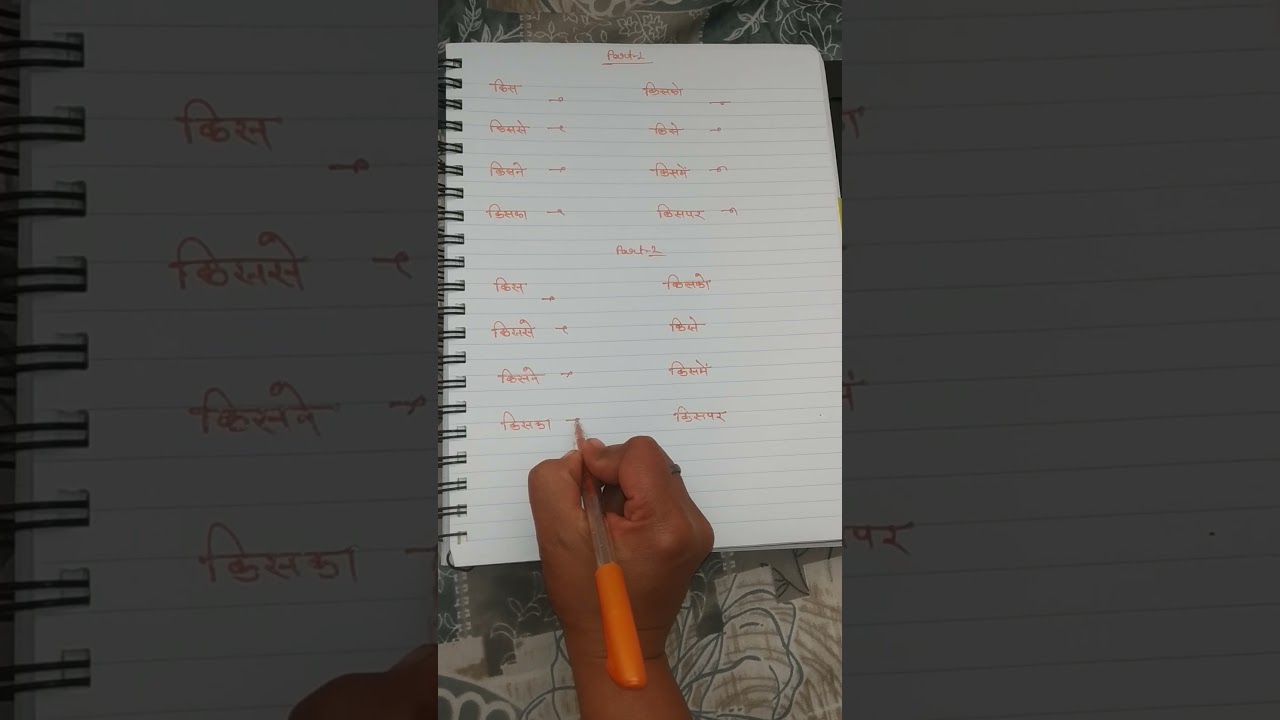 Part-1
किस → किसको →
किससे → किसे →
किसने → किसमें →
किसका → किसपर →
Part-2
किस → किसको
किससे → किसे
किसने → किसमें
किसका → किसपर